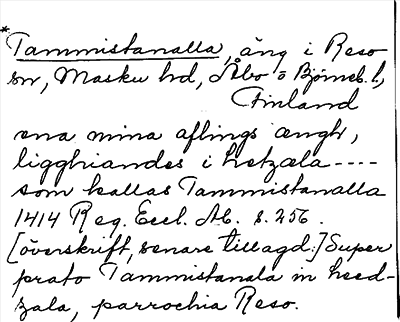 *Tammistanalla, äng i Reso
sn, Masku hd, Åbo o Björneb. l,
Finland
ena mina aflings ængh,
ligghiandes i hetzæla ----
som kallas Tammistanalla
1414 Reg. Eccl. Ab. s. 256.
[överskrift, senare tillagd:] Super
prato Tammistanala in heed-
zala, parrochia Reso.